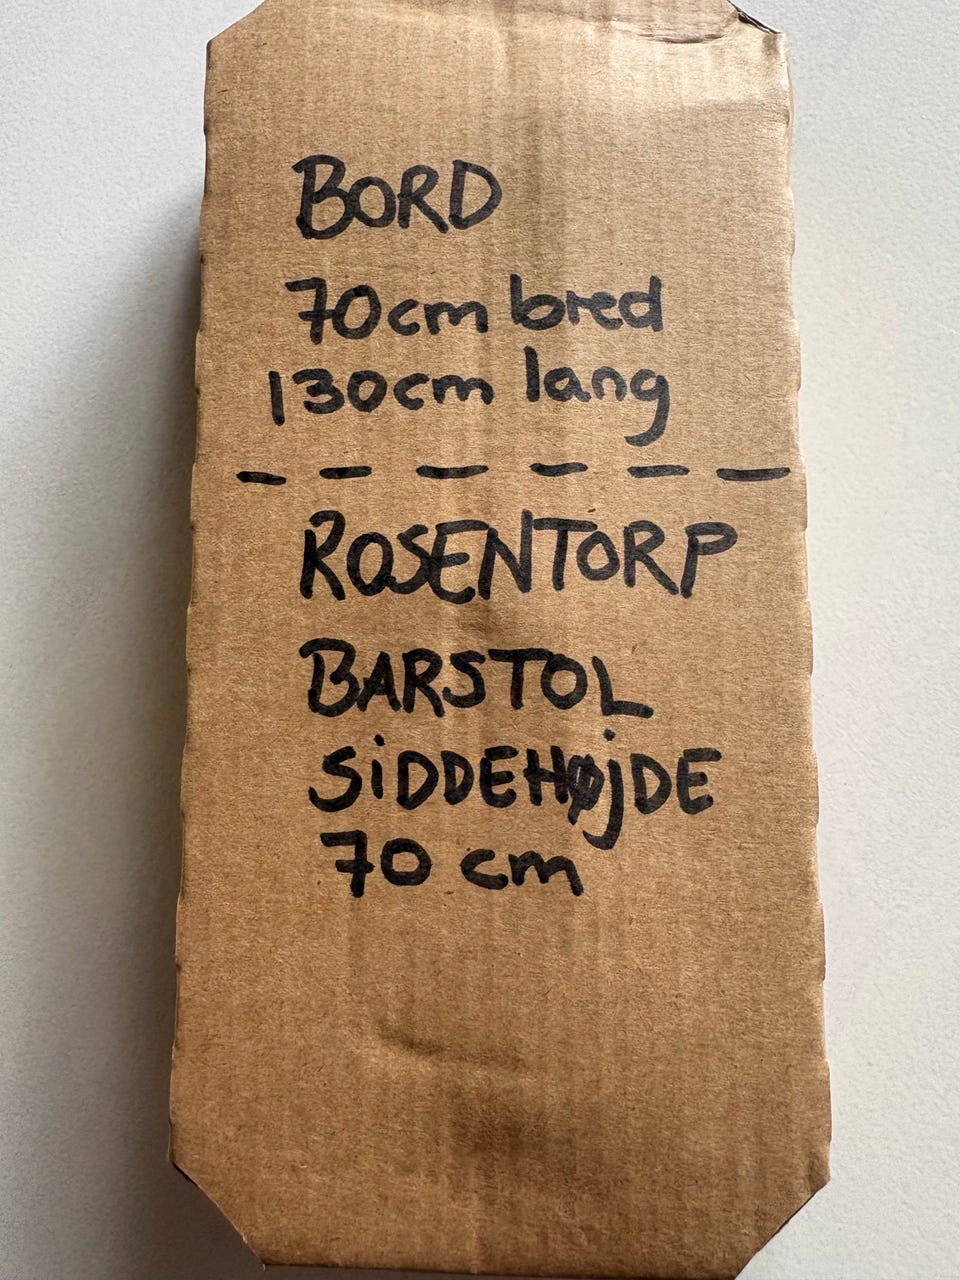 BORD
70cm bred
130cm lang
ROSENTORP
BARSTOL
SiDDEHØjDE
70 cm